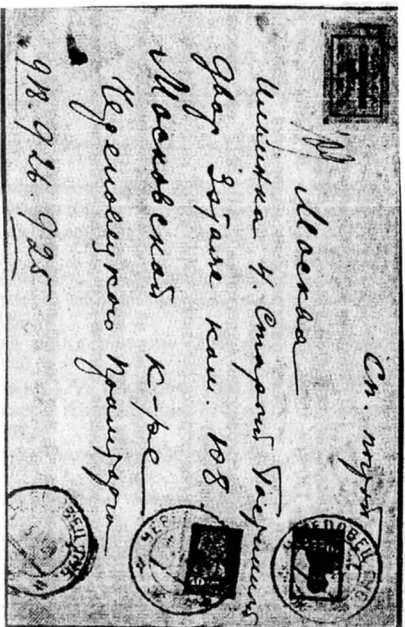 Сп. почт
Москва
Ильинка 4. Старый Гостиный
двор Зотале ком. 108
Московской к-ре
Череповецкого Промторга
918. 926. 925
ЧЕРЕПОВЕЦ
ЧЕР